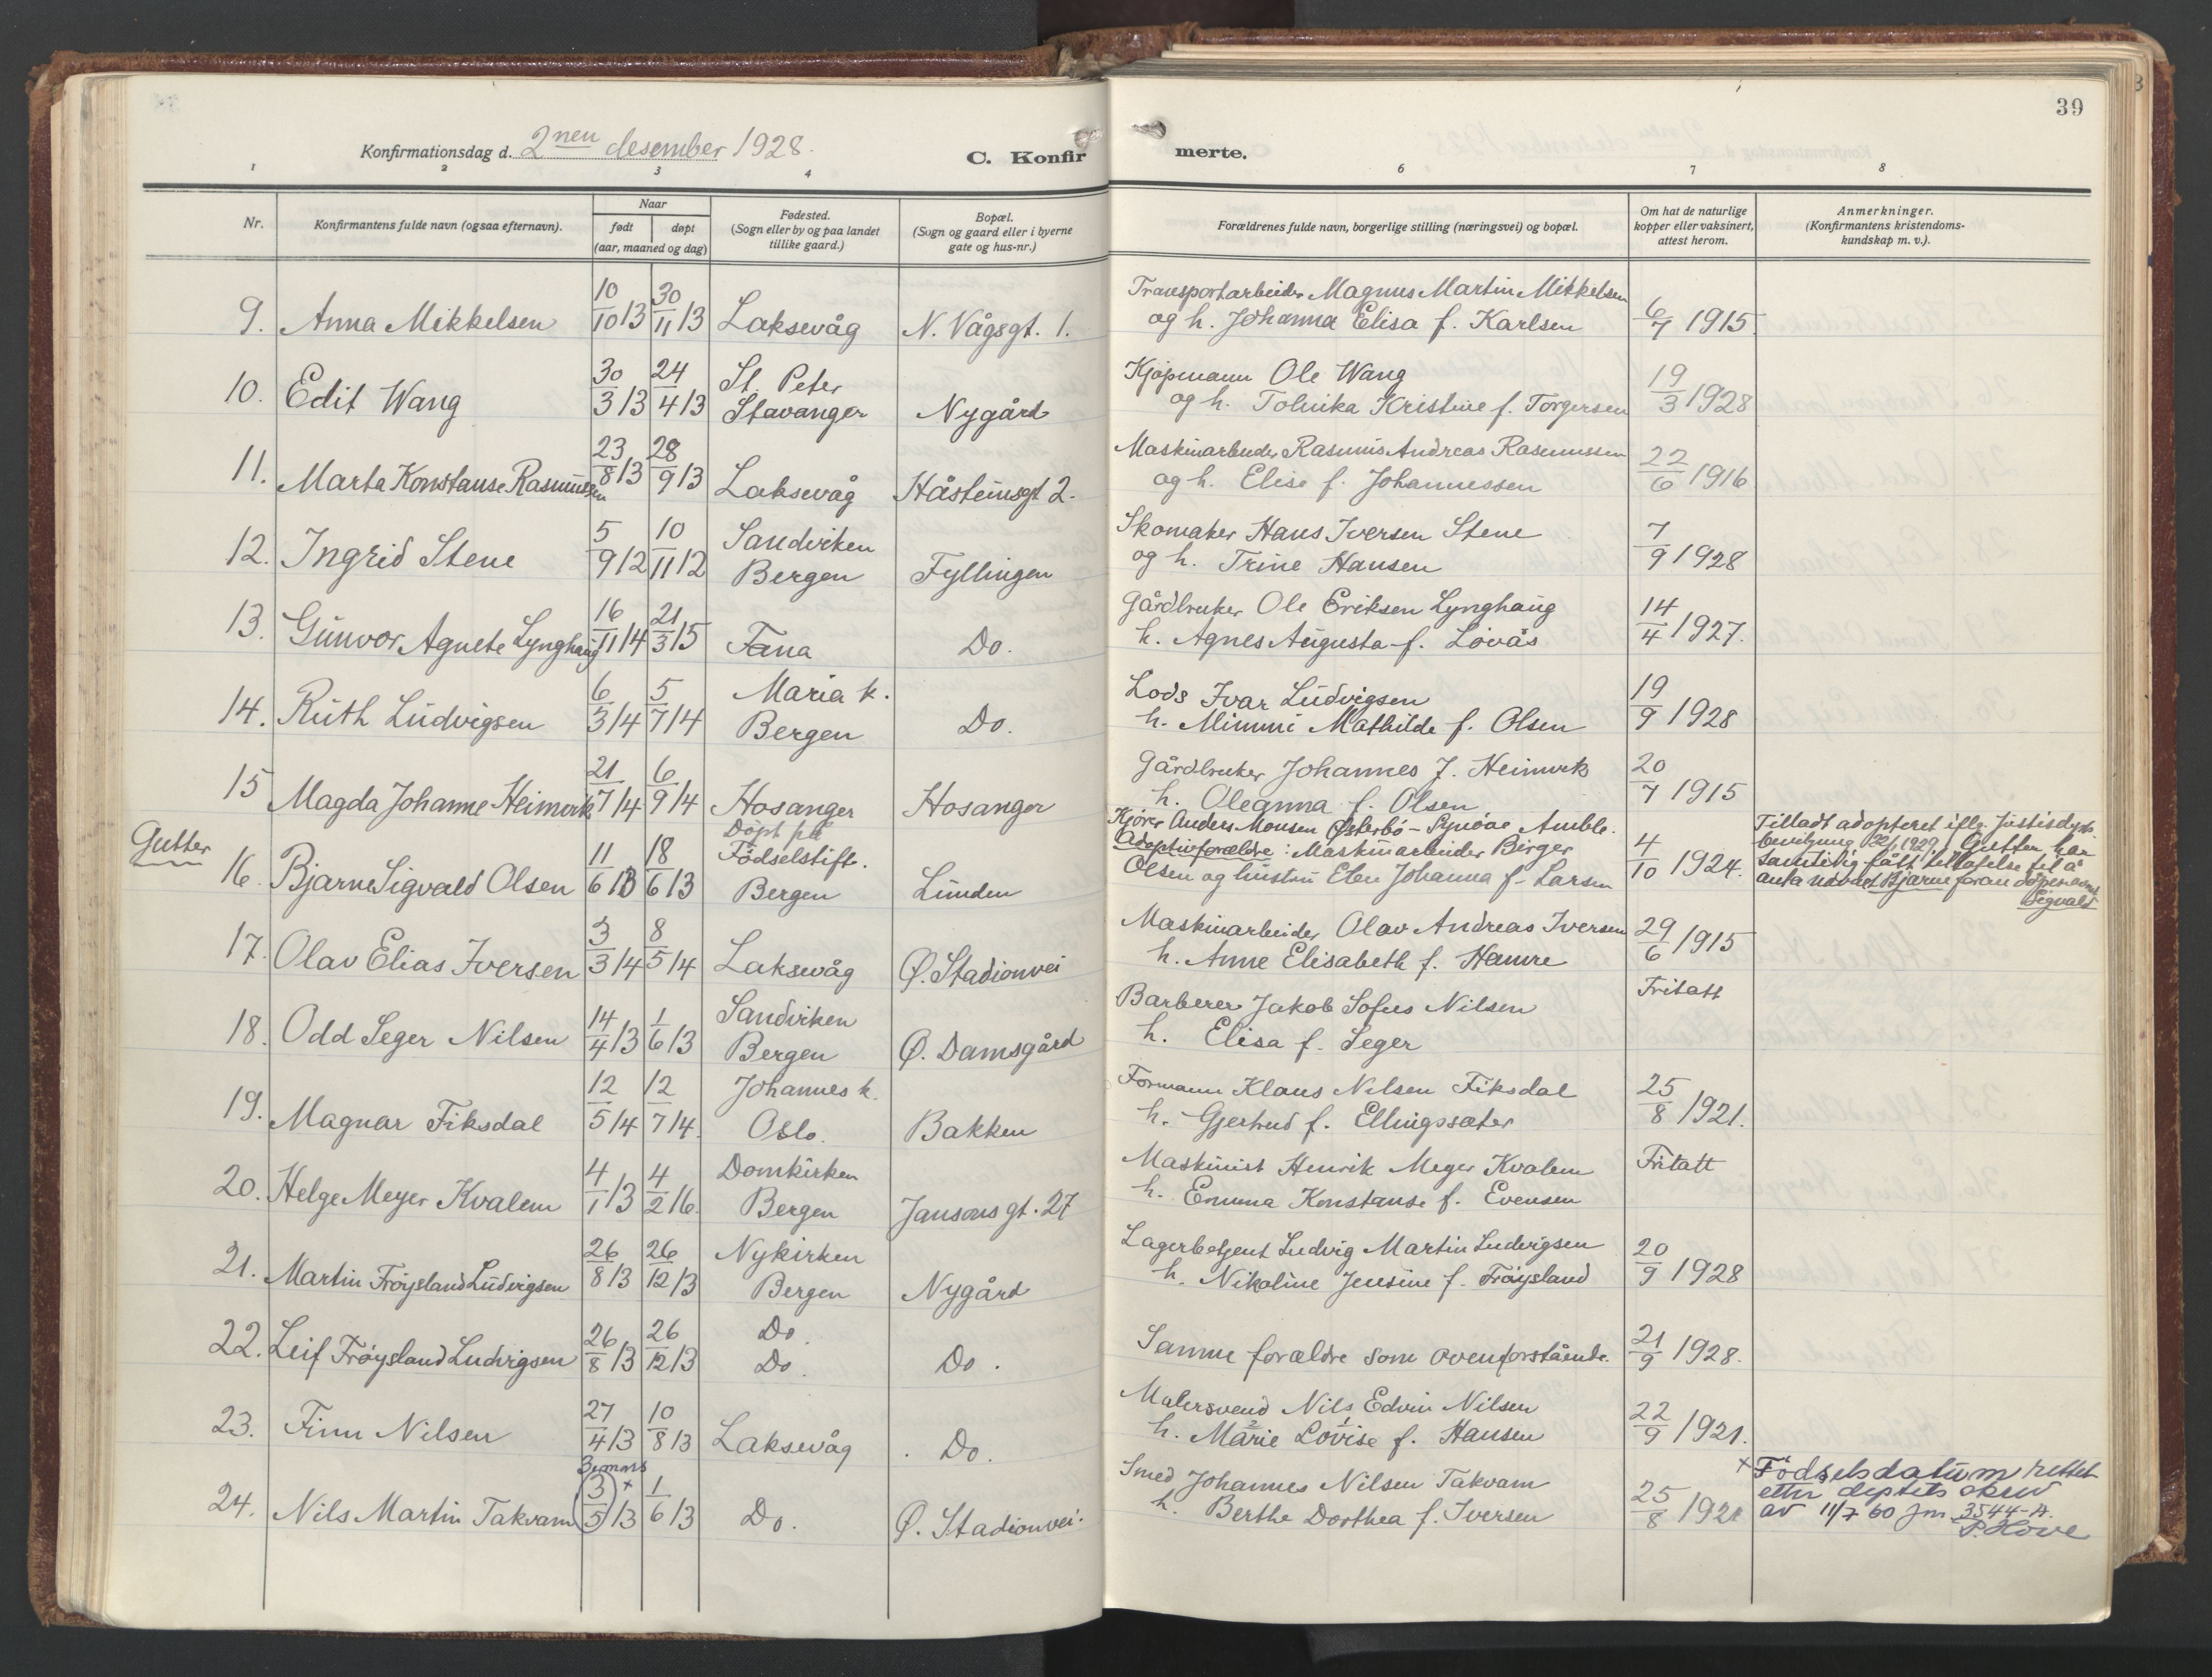 39
Konfirmationsdag d. 2nen desember 1928.
C. Konfirmerte.
1 2 3 4 6 7 8
Nr. Konfirmantens fulde navn (ogsaa efternavn). Naar født døpt (aar, maaned og dag) Fødested. (Sogn eller by og paa landet tillike gaard.) Bopæl. (Sogn og gaard eller i byerne gate og hus-nr.) Forældrenes fulde navn, borgerlige stilling (næringsvei) og bopæl. Om hat de naturlige kopper eller vaksinert, attest herom. Anmerkninger. (Konfirmantens kristendomskundskap m. v.).
9. Anna Mikkelsen 10/10 13 30/11 13 Laksevåg N. Vågsgt. 1. Transportarbeider Magnus Martin Mikkelsen
og h. Johanna Elisa f. Karlsen 6/7 1915.
10. Edit Wang 30/3 13 24/4 13 St. Peter Stavanger Nygård Kjøpmann Ole Wang
og h. Tolnika Kristine f. Torgersen 19/3 1928
11. Marta Konstanse Rasmussen 23/8 13 28/9 13 Laksevåg Håsteinsgt 2. Maskinarbeider Rasmus Andreas Rasmussen
og h. Elise f. Johannessen 22/6 1916
12. Ingrid Stene 5/9 12 10/11 12 Sandviken Bergen Fyllingen Skomaker Hans Iversen Stene
og h. Trine Hansen 7/9 1928
13. Gunvor Agnete Lynghaug 16/11 14 21/3 15 Fana Do. Gårdbruker Ole Eriksen Lynghaug
h. Agnes Augusta f. Lövås 14/4 1927.
14. Ruth Ludvigsen 6/3 14 5/7 14 Maria k. Bergen Do. Lods Ivar Ludvigsen
h. Mimmi Mathilde f. Olsen 19/9 1928
15 Magda Johanne Heimvik 21/7 14 6/9 14 Hosanger Hosanger Gårdbruker Johannes J. Heimvik
h. Oleanna f. Olsen 20/7 1915
Gutter
16. Bjarne Sigvald Olsen 11/6 13 18/6 13 Döpt på Födselstift. Bergen Lunden Kjörer Anders Monsen Østerbö - Synöve Amble.
Adoptivforældre: Maskinarbeider Birger
Olsen og hustru Elen Johanna f. Larsen 4/10 1924. Tilladt adopteret iflg. Justisdept.
bevilgning 22/1 1929. Gutten har
samtidig fått tillatelse til å
anta navnet Bjarne foran döpenavnet
Sigvald
17. Olav Elias Iversen 3/3 14 8/5 14 Laksevåg Ø. Stadionvei Maskinarbeider Olav Andreas Iversen
h. Anne Elisabeth f. Hamre 29/6 1915
18. Odd Seger Nilsen 14/4 13 1/6 13 Sandviken Bergen Ø. Damsgård Barberer Jakob Sofus Nilsen
h. Elisa f. Seger Fritatt
19. Magnar Fiksdal 12/5 14 12/7 14. Johannes k. Oslo. Bakken Formann Klaus Nilsen Fiksdal
h. Gjertrud f. Ellingssæter 25/8 1921.
20. Helge Meyer Kvalem 4/1 13 4/2 16. Domkirken Bergen Jansons gt. 27 Maskinist Henrik Meyer Kvalem
h. Emma Konstanse f. Evensen Fritatt
21. Martin Fröysland Ludvigsen 26/8 13 26/12 13 Nykirken Bergen Nygård Lagerbetjent Ludvig Martin Ludvigsen
h. Nikoline Jensine f. Fröysland 20/9 1928
22. Leif Fröysland Ludvigsen 26/8 13 26/12 13 Do. Do. Do. Samme forældre som ovenforstående. 21/9 1928.
23. Finn Nilsen 27/4 13 10/8 13 Laksevåg Do. Malersvend Nils Edvin Nilsen
h. Marie Lovise f. Hansen 22/9 1921.
24. Nils Martin Takvam 3 mars 3/5 13 x 1/6 13 Do. Ø. Stadionvei. Smed Johannes Nilsen Takvam
h. Berthe Dorthea f. Iversen 25/8 1921 x Födselsdatum rettet
etter deptets skriv
av 11/7 60 Jnr 3544-A.
P. Hove